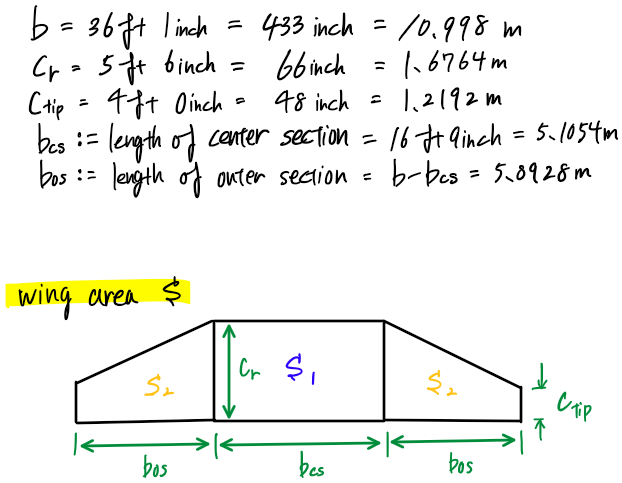 b = 36ft 1inch = 433 inch = 10.998 m
Cr = 5ft 6inch = 66inch = 1.6764m
Ctip = 4ft 0inch = 48 inch = 1.2192m
bcs := length of center section = 16 ft 9inch = 5.1054m
bos := length of outer section = b-bcs = 5.8928m
wing area S
S2 Cr S1 S2 CTip
bos bcs bos